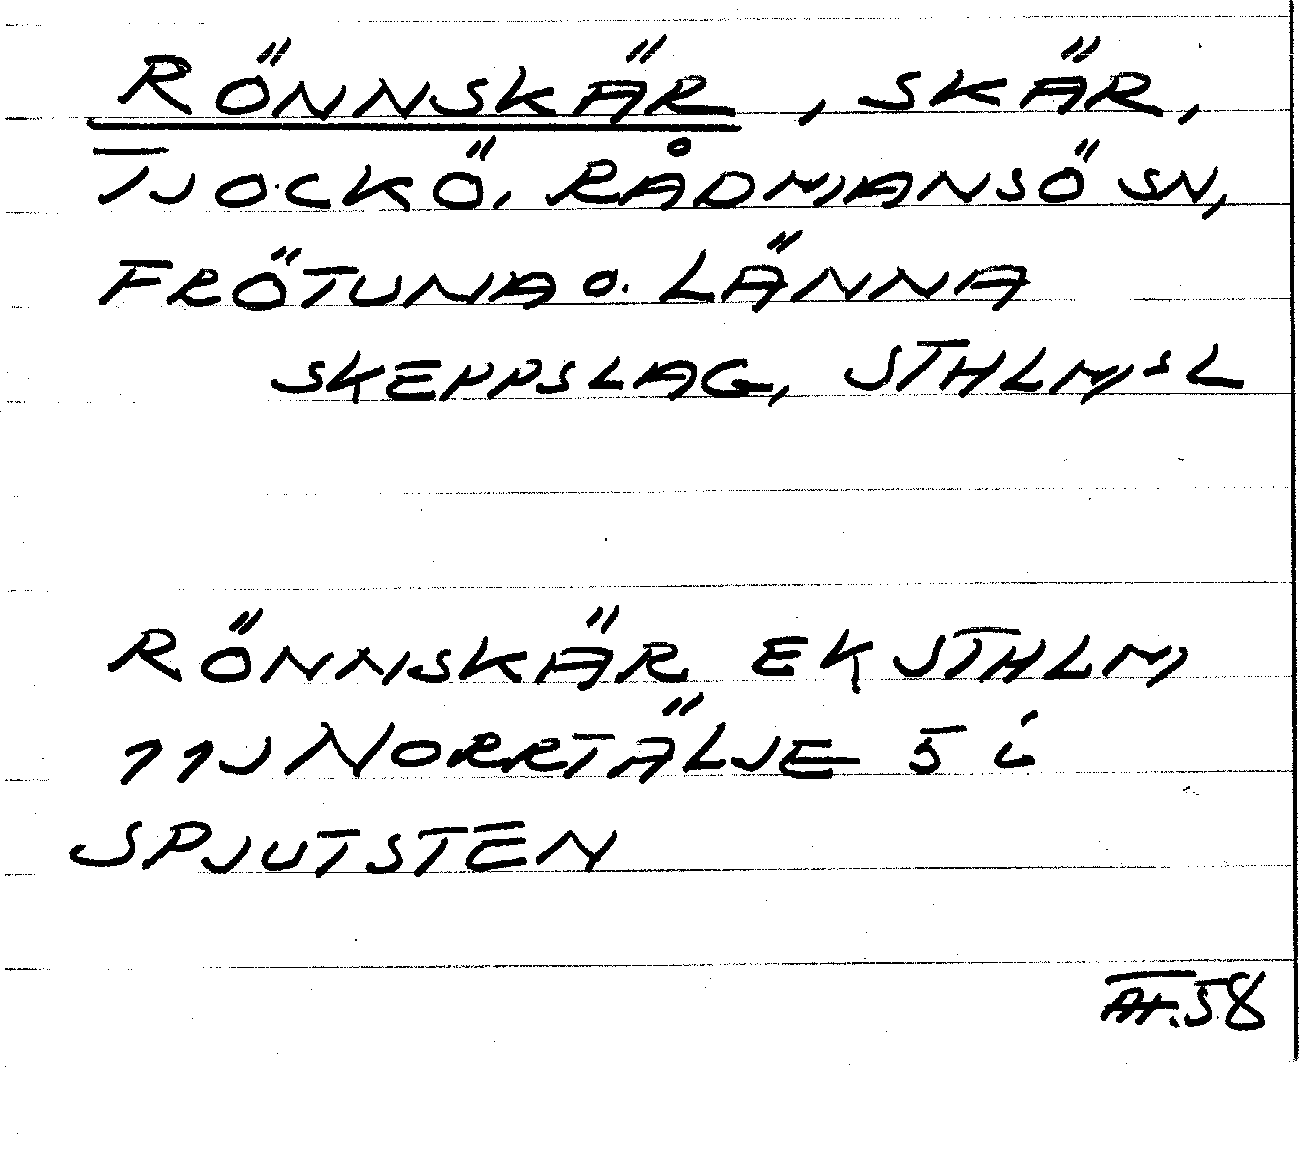 RÖNNSKÄR, SKÄR,
TJOCKÖ, RÅDMANSÖ SN,
FRÖTUNA O. LÄNNA
SKEPPSLAG, STHLMSL
RÖNNSKÄR EK STHLM
11J NORRTÄLJE 5 i
SPJUTSTEN
58